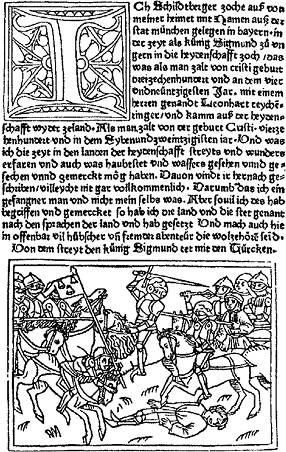 Ch Schildtberger zoche auß von
meiner heimet mit Namen auß der
stat münchen gelegen in bayern in
der zeyt als künig Sigmund zů vn
gern in die heydenschafft zoch das
was als man zalt von cristi geburt
dreizechenhundert vnd an dem vier
vndneüntzigisten Jar mit einem
herren genandt Leonhart reychen
tinger vnd kamm auß der heyden
schafft wyder zeland Als man zalt von der geburt Cristi vierze
henhundert vnd in dem Sybenundzweintzigisten iar Vnd was
ich die zeyt in den landen der heydenschafft streyts vnd wunders
erfaren vnd auch was haubtstet vnd wassers gesehen vnnd ge
sechen vnnd gemerckt mög haben Dauon vindt ir hernach ge
schriben villeycht nit gar volkommenlich Darumb das ich ein
gefangner man vnd nicht mein selbs was Aber souil ich des hab
begriffen vnd gemercket so hab ich die land vnd die stet genant
nach den sprachen der land vnd hab gesetzt Vnd mach auch hie
in offenbar vil hübscher vñ fremder abenteür die wolzehörē seind
Von dem streyt den künig Sigmund tet mit den Türcken